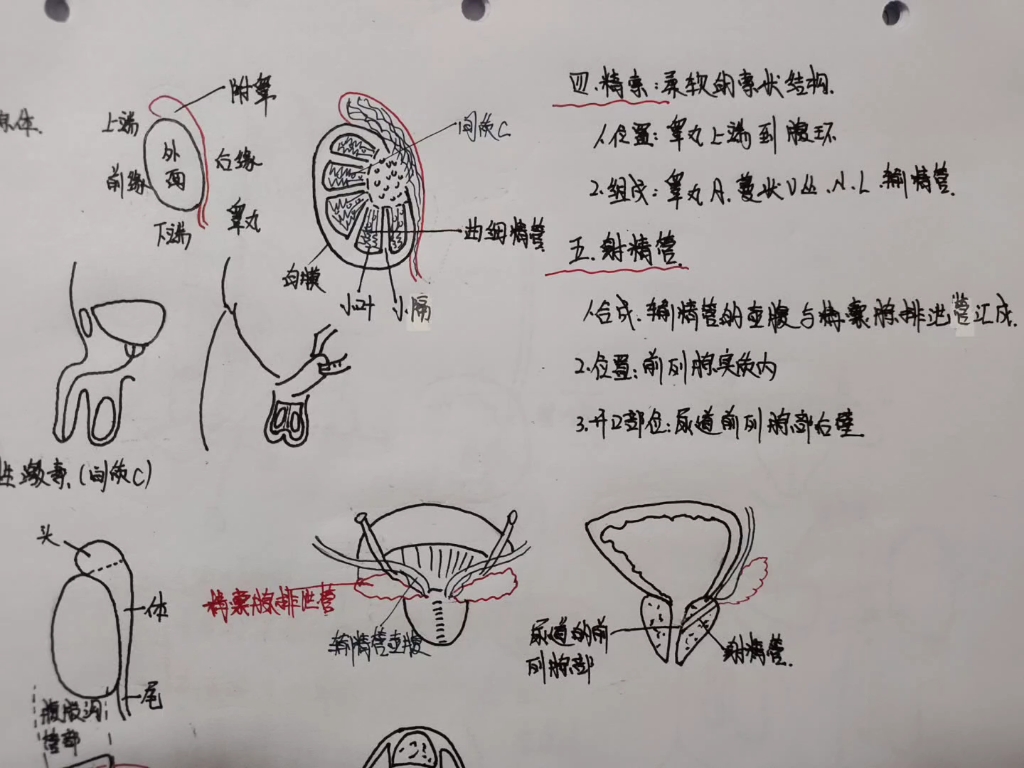 附睾
上端
前缘
外面
后缘
下端
睾丸
间质C
曲细精管
白膜
小叶
小隔
四.精索:柔软的索状结构.
1.位置:睾丸上端到腹环
2.组成:睾丸A.蔓状V丛.N.L.输精管.
五.射精管
1.合成.输精管的壶腹与精囊腺排泄管汇成.
2.位置:前列腺实质内
3.开口部位:尿道前列腺部后壁
性激素.(间质C)
头
体
尾
精囊腺排泄管
输精管壶腹
尿道的前
列腺部
射精管.
腹股沟
管部